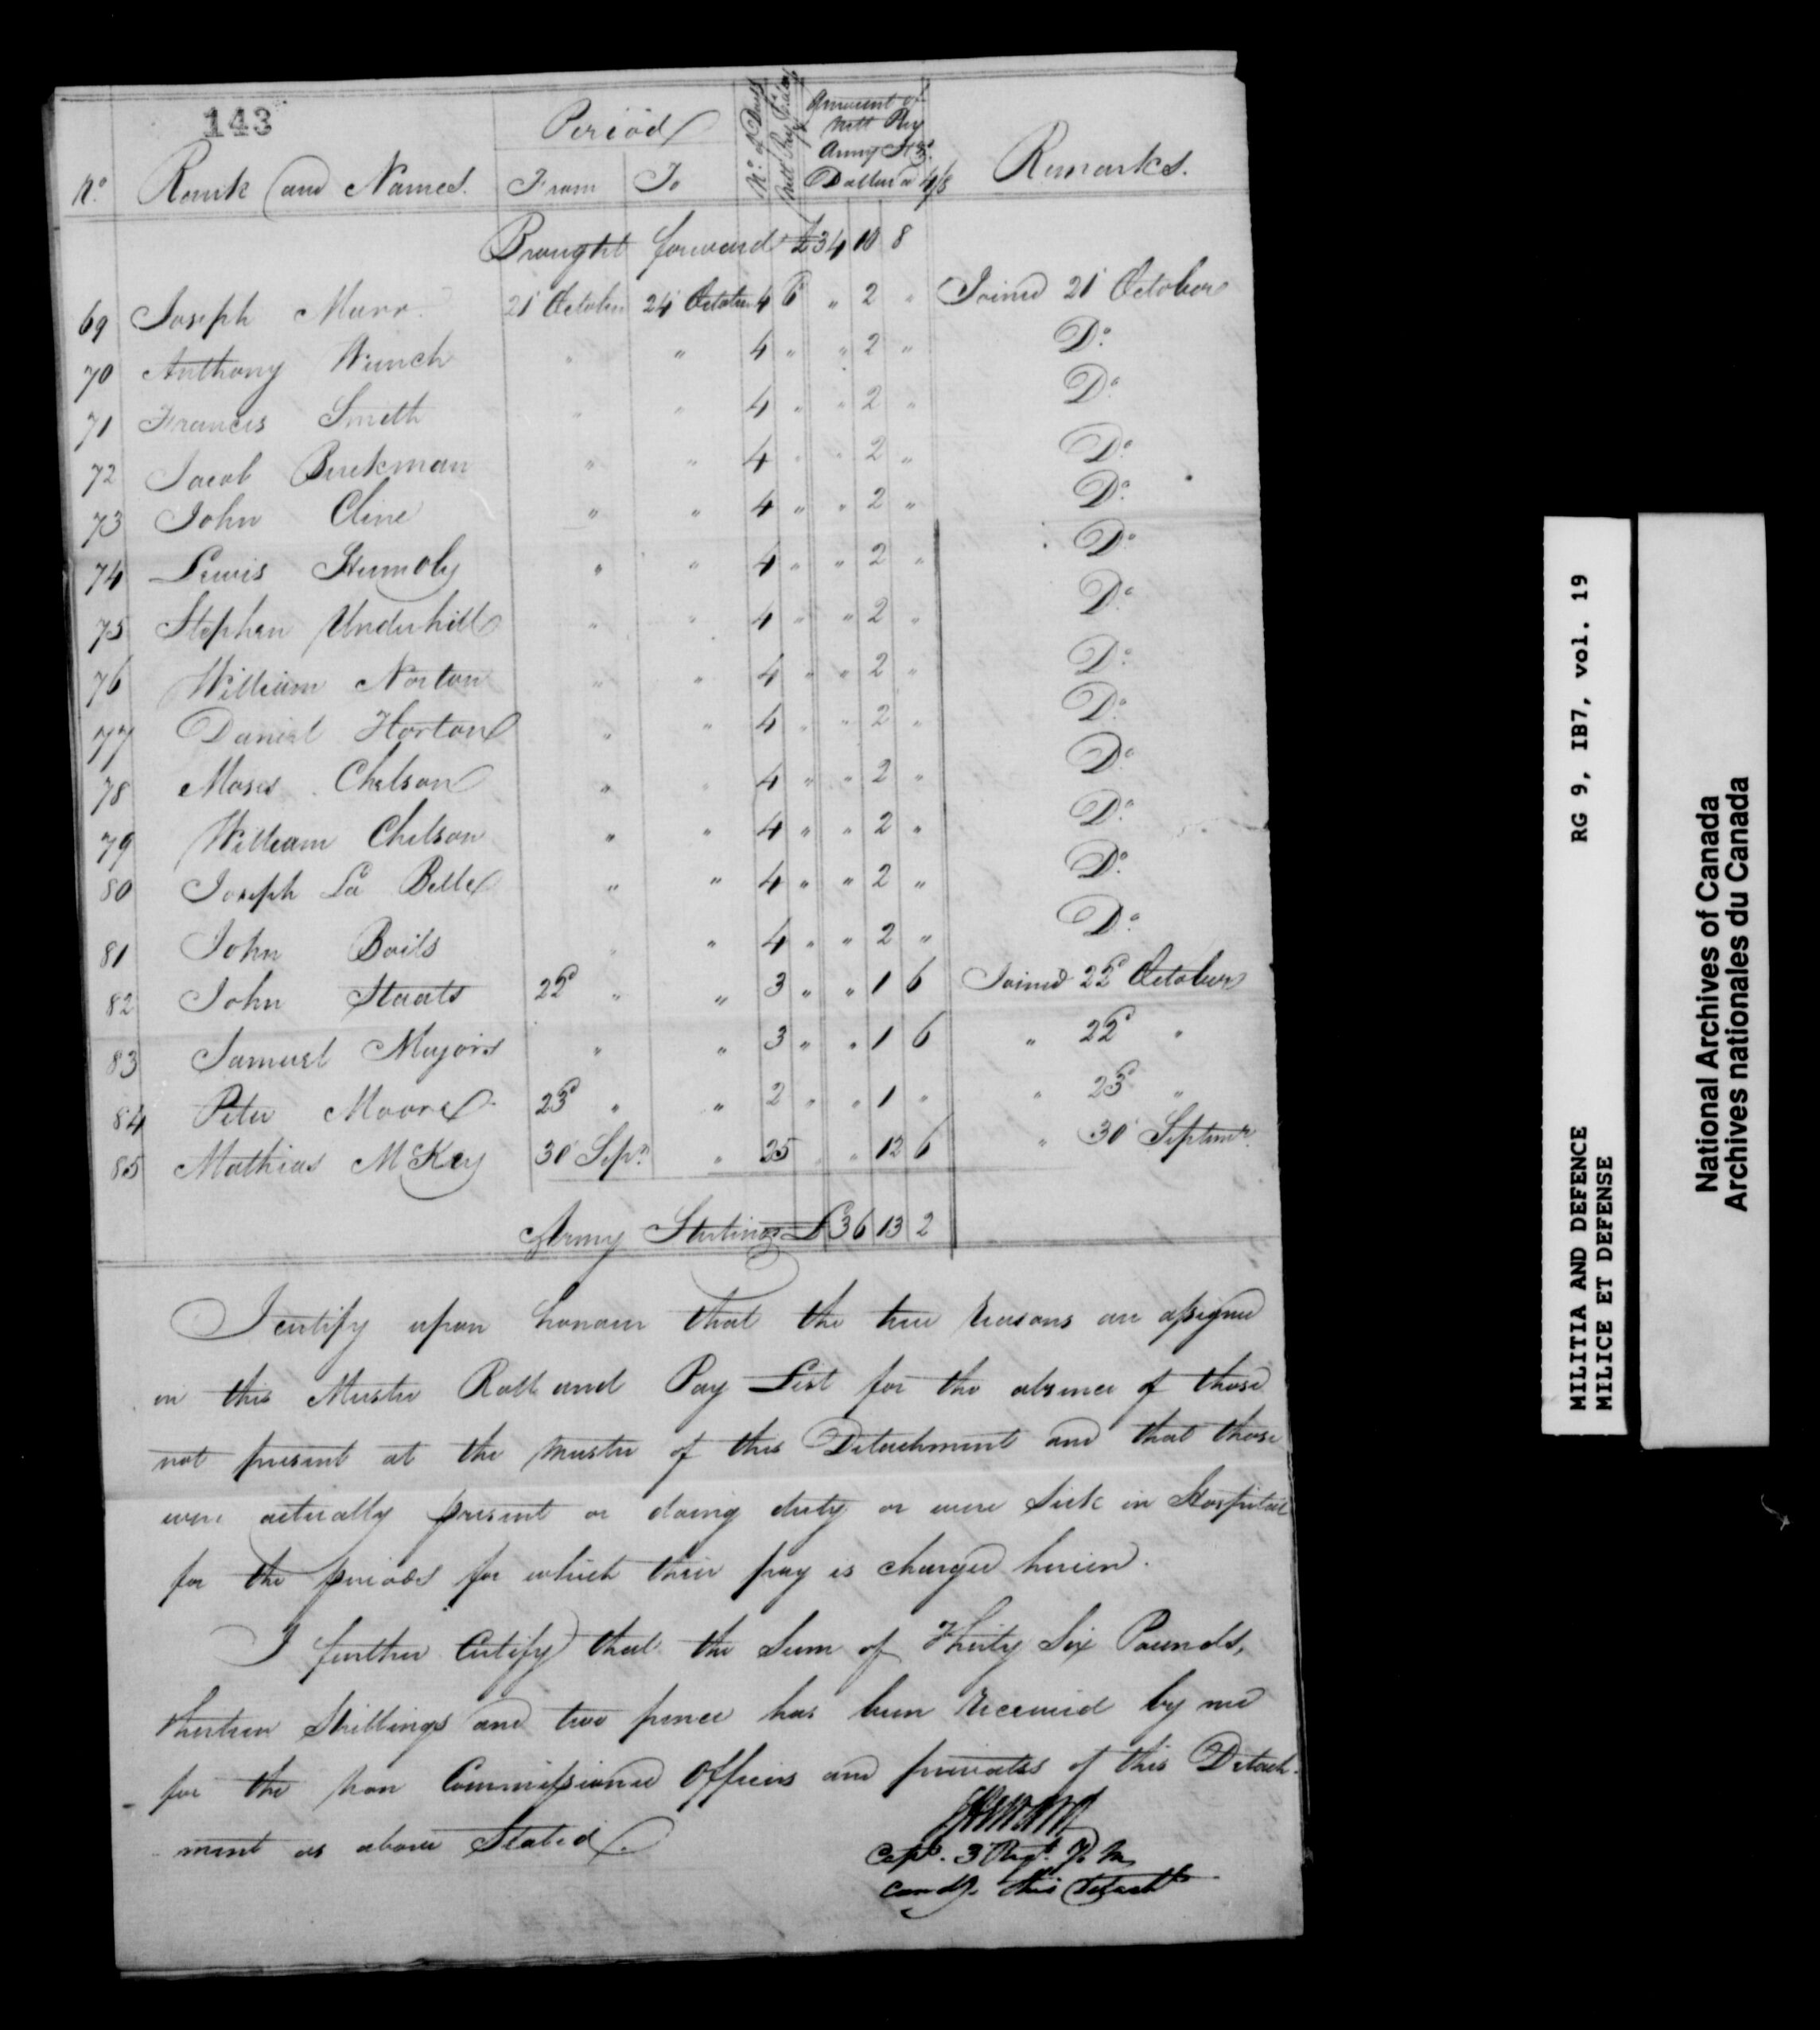 143
Period
No. of Days
Amount of
Nett Pay
Army Stg.
Dollar a 4/8
No. Rank and Names. From To Remarks.
Brought forward £ 34 10 8
69 Joseph Marr 21st October 24th October 4 6d " 2 " Joined 21st October
70 Anthony Wunch " " 4 " " 2 " Do.
71 Francis Smith " " 4 " " 2 " Do.
72 Jacob Buckman " " 4 " " 2 " Do.
73 John Cline " " 4 " " 2 " Do.
74 Lewis Humbly " " 4 " " 2 " Do.
75 Stephen Underhill " " 4 " " 2 " Do.
76 William Norton " " 4 " " 2 " Do.
77 Daniel Horton " " 4 " " 2 " Do.
78 Moses Chelson " " 4 " " 2 " Do.
79 William Chelson " " 4 " " 2 " Do.
80 Joseph La Belle " " 4 " " 2 " Do.
81 John Boils " " 4 " " 2 " Do.
82 John Staats 22d " " 3 " " 1 6 Joined 22d October
83 Samuel Majors " " 3 " " 1 6 " 22d "
84 Peter Moore 23d " " 2 " " 1 " " 23d "
85 Mathias McKay 30th Sepr. " 25 " " 12 6 " 30th Septemr.
Army Sterling £ 36 13 2
I certify upon honour that the true reasons are assigned
in this Muster Roll and Pay List for the absence of those
not present at the muster of this Detachment and that those
were actually present or doing duty or were Sick in Hospital
for the periods for which their pay is charged herein.
I further Certify that the Sum of Thirty Six Pounds,
thirteen Shillings and two pence has been received by me
for the non Commissioned Officers and privates of this Detach-
ment as above Stated.
Capt. 3 Regt. Y. M.
Comdg. this Detacht
MILITIA AND DEFENCE RG 9, IB7, vol. 19
MILICE ET DEFENSE
National Archives of Canada
Archives nationales du Canada